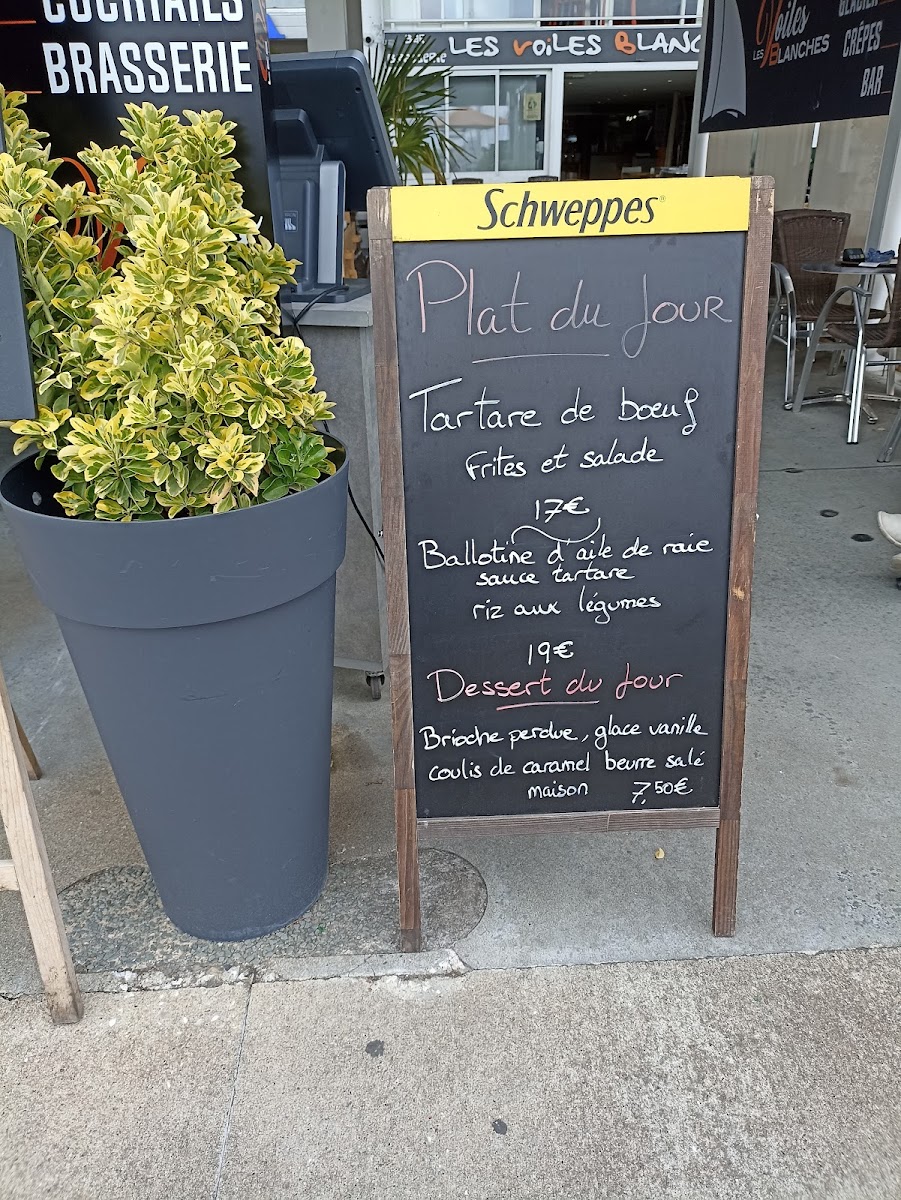 COCKTAILS
BRASSERIE
LES VOILES BLANC
Voiles
LES BLANCHES
GLACIER
CRÊPES
BAR
Schweppes
Plat du Jour
Tartare de boeuf
frites et salade
17€
Ballotine d'aile de raie
sauce tartare
riz aux légumes
19€
Dessert du Jour
Brioche perdue, glace vanille
coulis de caramel beurre salé
maison 7,50€